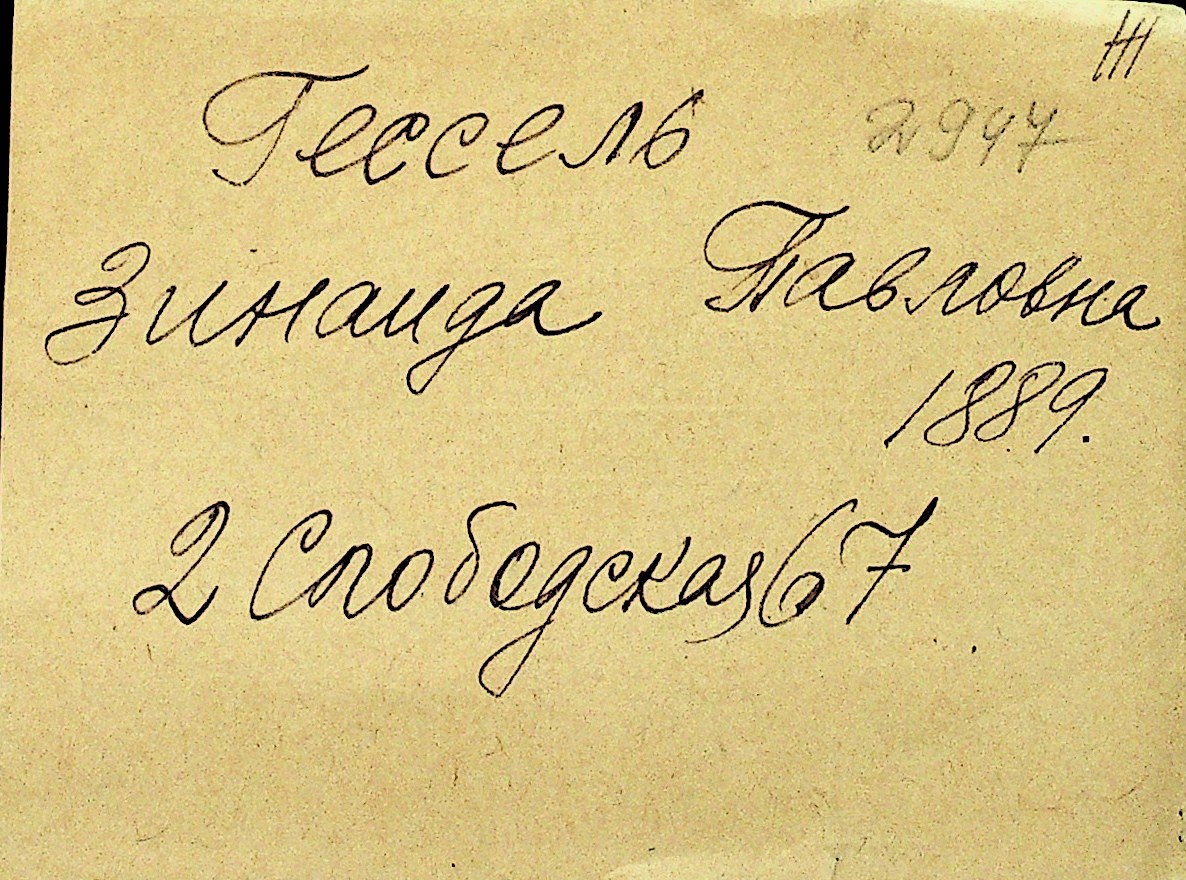 Ж
Гессель 2947
Зинаида Павловна
1889.
2 Слободская 67